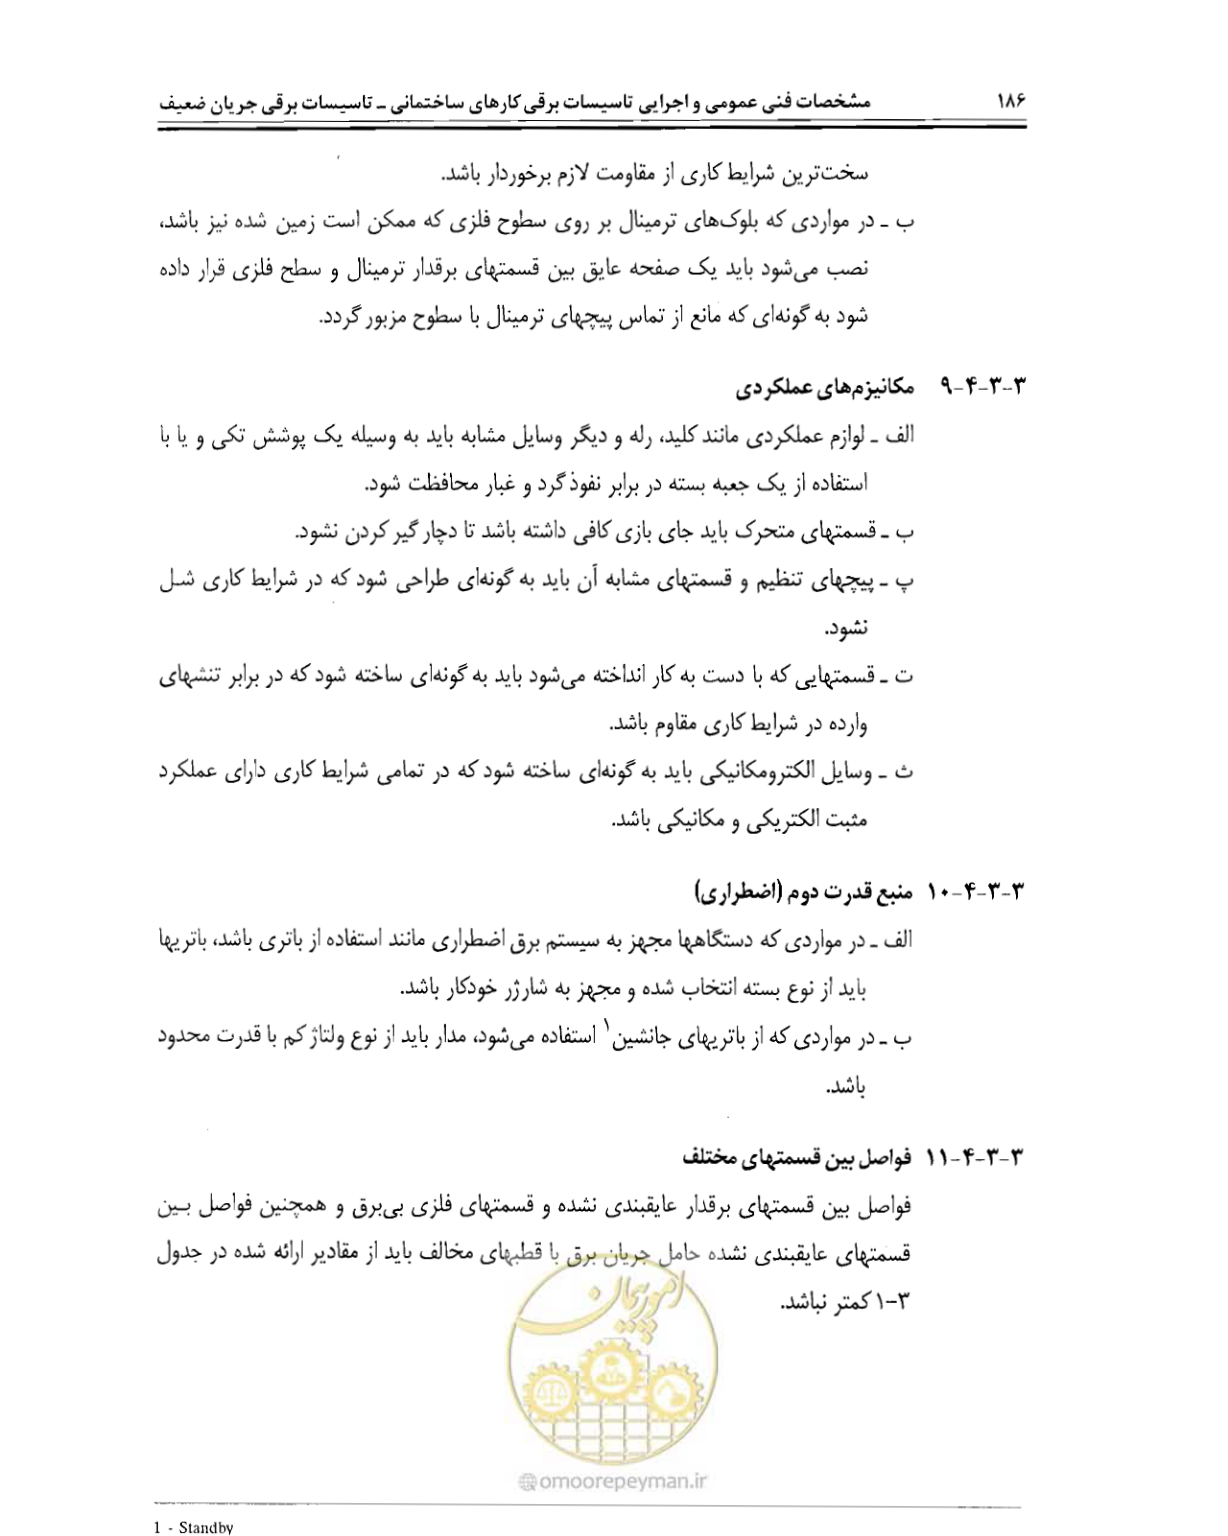 ۱۸۶ مشخصات فنی عمومی و اجرایی تاسیسات برقی کارهای ساختمانی ـ تاسیسات برقی جریان ضعیف
سخت‌ترین شرایط کاری از مقاومت لازم برخوردار باشد.
ب ـ در مواردی که بلوک‌های ترمینال بر روی سطوح فلزی که ممکن است زمین شده نیز باشد،
نصب می‌شود باید یک صفحه عایق بین قسمتهای برقدار ترمینال و سطح فلزی قرار داده
شود به گونه‌ای که مانع از تماس پیچهای ترمینال با سطوح مزبور گردد.
۳-۳-۴-۹ مکانیزم‌های عملکردی
الف ـ لوازم عملکردی مانند کلید، رله و دیگر وسایل مشابه باید به وسیله یک پوشش تکی و یا با
استفاده از یک جعبه بسته در برابر نفوذ گرد و غبار محافظت شود.
ب ـ قسمتهای متحرک باید جای بازی کافی داشته باشد تا دچار گیر کردن نشود.
پ ـ پیچهای تنظیم و قسمتهای مشابه آن باید به گونه‌ای طراحی شود که در شرایط کاری شل
نشود.
ت ـ قسمتهایی که با دست به کار انداخته می‌شود باید به گونه‌ای ساخته شود که در برابر تنشهای
وارده در شرایط کاری مقاوم باشد.
ث ـ وسایل الکترومکانیکی باید به گونه‌ای ساخته شود که در تمامی شرایط کاری دارای عملکرد
مثبت الکتریکی و مکانیکی باشد.
۳-۳-۴-۱۰ منبع قدرت دوم (اضطراری)
الف ـ در مواردی که دستگاهها مجهز به سیستم برق اضطراری مانند استفاده از باتری باشد، باتریها
باید از نوع بسته انتخاب شده و مجهز به شارژر خودکار باشد.
ب ـ در مواردی که از باتریهای جانشین۱ استفاده می‌شود، مدار باید از نوع ولتاژ کم با قدرت محدود
باشد.
۳-۳-۴-۱۱ فواصل بین قسمتهای مختلف
فواصل بین قسمتهای برقدار عایقبندی نشده و قسمتهای فلزی بی‌برق و همچنین فواصل بین
قسمتهای عایقبندی نشده حامل جریان برق با قطبهای مخالف باید از مقادیر ارائه شده در جدول
۳-۱ کمتر نباشد.
امور پیمان
omoorepeyman.ir
1 - Standby